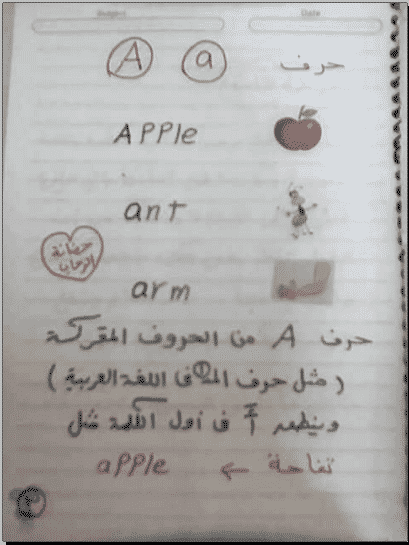 Subject Date
حرف A a
Apple
ant
حضانة
الرحمان
arm
حرف A من الحروف المتحركة
(مثل حرف الـ ا فى اللغة العربية)
وينطق أَ فى أول الكلمة مثل
تفاحة ← apple
٣